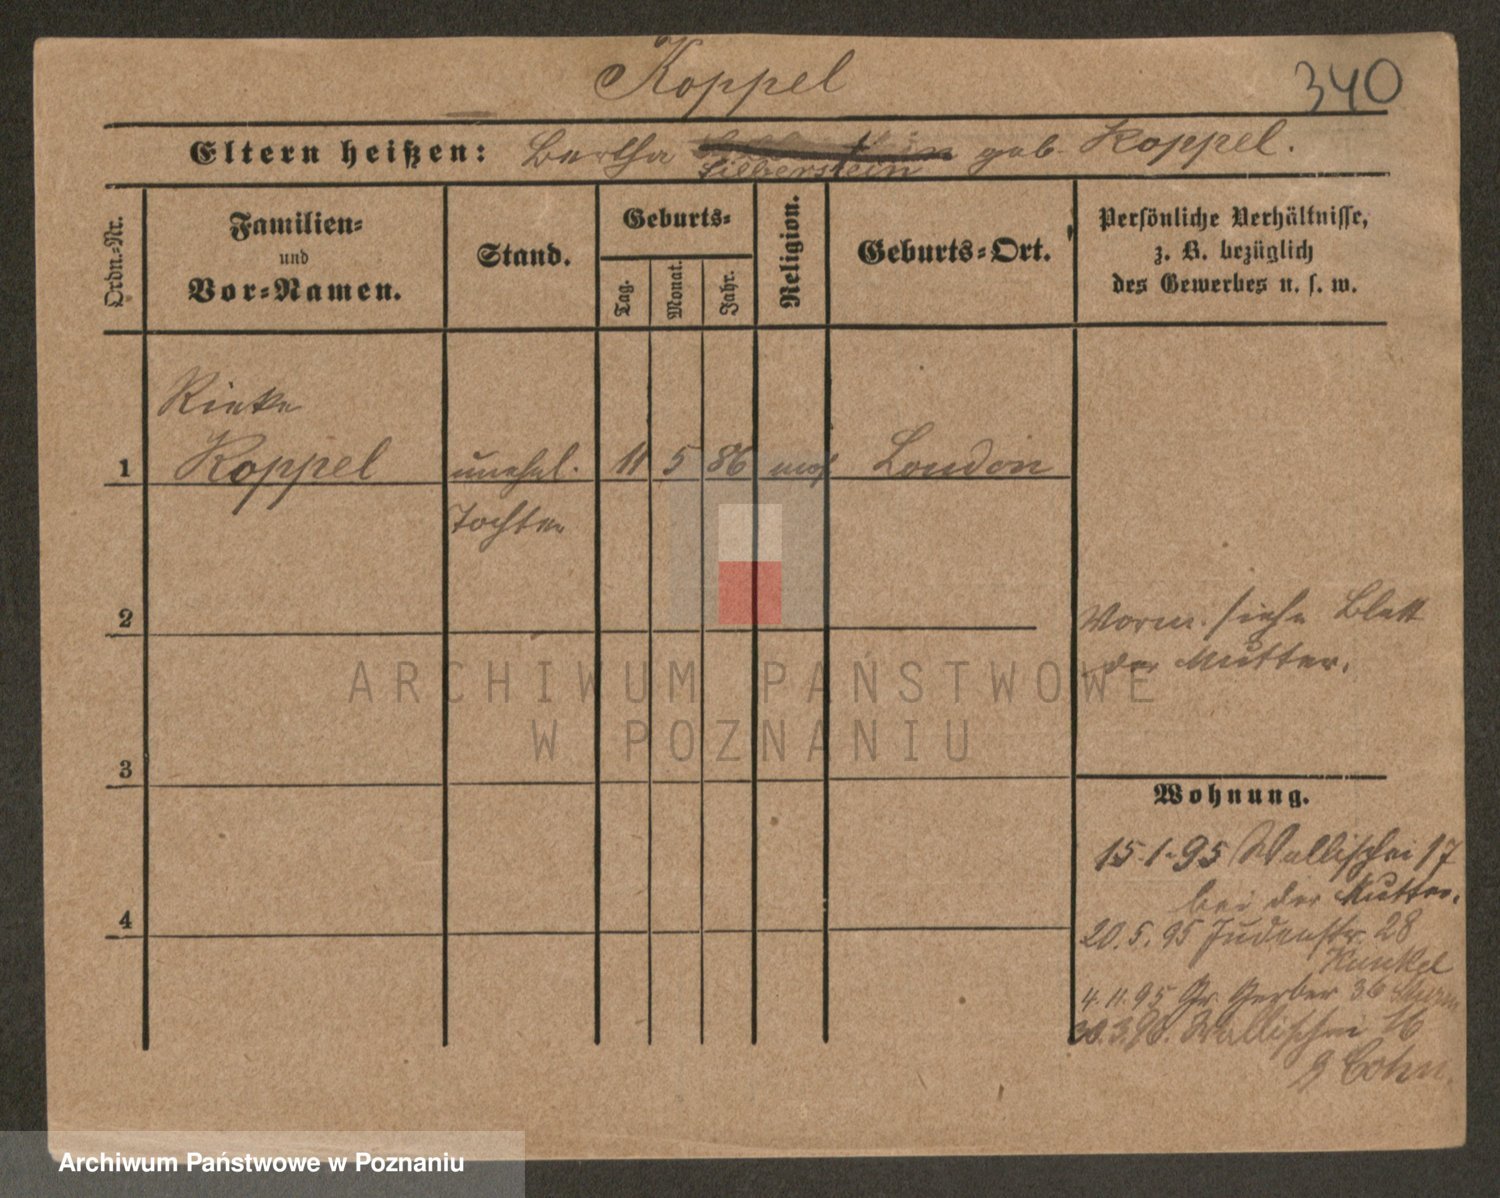 Koppel
340
Eltern heißen: Bertha Silberstein geb. Koppel.
Ordn.-Nr.
Familien-
und
Vor-Namen.
Stand.
Geburts-
Tag.
Monat.
Jahr.
Religion.
Geburts-Ort.
Persönliche Verhältnisse,
z. B. bezüglich
des Gewerbes u. s. w.
Rieke
1 Koppel unehel. 11 5 86 mos London
Tochter
2
Vorm. siehe Blatt
der Mutter.
ARCHIWUM PAŃSTWOWE
W POZNANIU
3
Wohnung.
15.1.95 Wallischei 17
bei der Mutter.
4
20.5.95 Judenstr. 28
Kunkel
4.11.95 Gr. Gerber 36
30.3.96. Wallischei 16
Cohn.
Archiwum Państwowe w Poznaniu